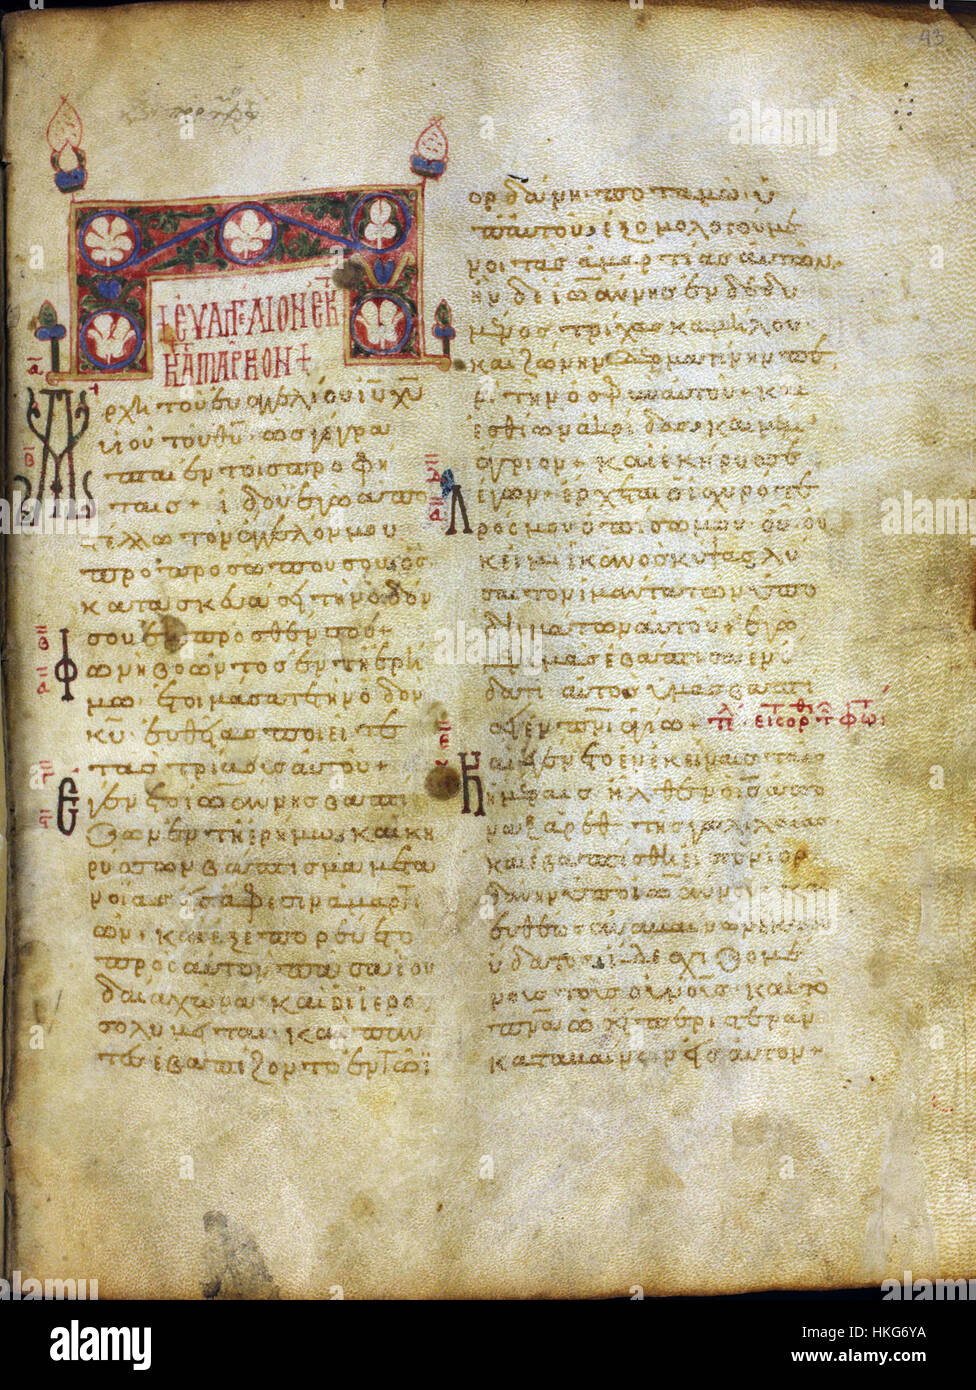 43
+ ΕΥΑΓΓΕΛΙΟΝ ΕΚ
ΚΑΤΑ ΜΑΡΚΟΝ +
Αρχὴ τοῦ εὐαγγελίου ιῦ χῦ
υἱοῦ τοῦ θῦ· ὡς γέγρα
πται ἐν τοῖς προφή
ταις + ἰδοὺ ἐγὼ ἀπο
στέλλω τὸν ἄγγελόν μου
πρὸ προσώπου σου ὃς
κατασκευάσει τὴν ὁδόν
σου ἔμπροσθέν σου +
Φωνὴ βοῶντος ἐν τῇ ἐρή
μω ἑτοιμάσατε τὴν ὁδὸν
κῦ εὐθείας ποιεῖτε
τὰς τρίβους αὐτοῦ +
Ἐγένετο ἰωάννης βαπτί
ζων ἐν τῇ ἐρήμω καὶ κη
ρύσσων βάπτισμα μετα
νοίας εἰς ἄφεσιν ἁμαρτι
ῶν· καὶ ἐξεπορεύετο
πρὸς αὐτὸν πᾶσα ἡ ἰου
δαία χώρα· καὶ οἱ ἱερο
σολυμῖται· καὶ πάν
τες ἐβαπτίζοντο ἐν τῶ ἰ
ορδάνη ποταμῶ ὑ
π' αὐτοῦ ἐξομολογούμε
νοι τὰς ἁμαρτίας αὐτῶν·
ἦν δὲ ἰωάννης ἐνδεδυ
μένος τρίχας καμήλου·
καὶ ζώνην δερματίνην πε
ρὶ τὴν ὀσφὺν αὐτοῦ· καὶ
ἐσθίων ἀκρίδας καὶ μέλι
ἄγριον + καὶ ἐκήρυσσε
λέγων + ἔρχεται ὁ ἰσχυρότε
ρός μου ὀπίσω μου· οὗ οὐ
κ εἰμὶ ἱκανὸς κύψας λῦ
σαι τὸν ἱμάντα τῶν ὑπο
δημάτων αὐτοῦ + ἐγὼ
μὲν ὑμᾶς ἐβάπτισα ἐν ὕ
δατι αὐτὸς ὑμᾶς βαπτί
σει ἐν πνι ἁγίω +
Καὶ ἐγένετο ἐν ἐκείναις ταῖς
ἡμέραις ἦλθεν ὁ ις ἀπὸ
ναζαρὲθ τῆς γαλιλαίας
καὶ ἐβαπτίσθη εἰς τὸν ἰορ
δάνην ὑπὸ ἰωάννου· καὶ
εὐθέως ἀναβαίνων ἐκ τοῦ
ὕδατος εἶδε σχιζομέ
νους τοὺς οὐνούς· καὶ τὸ
πνα ὡσεὶ περιστερὰν
καταβαῖνον ἐπ' αὐτόν +
alamy stock photo
HKG6YA
www.alamy.com